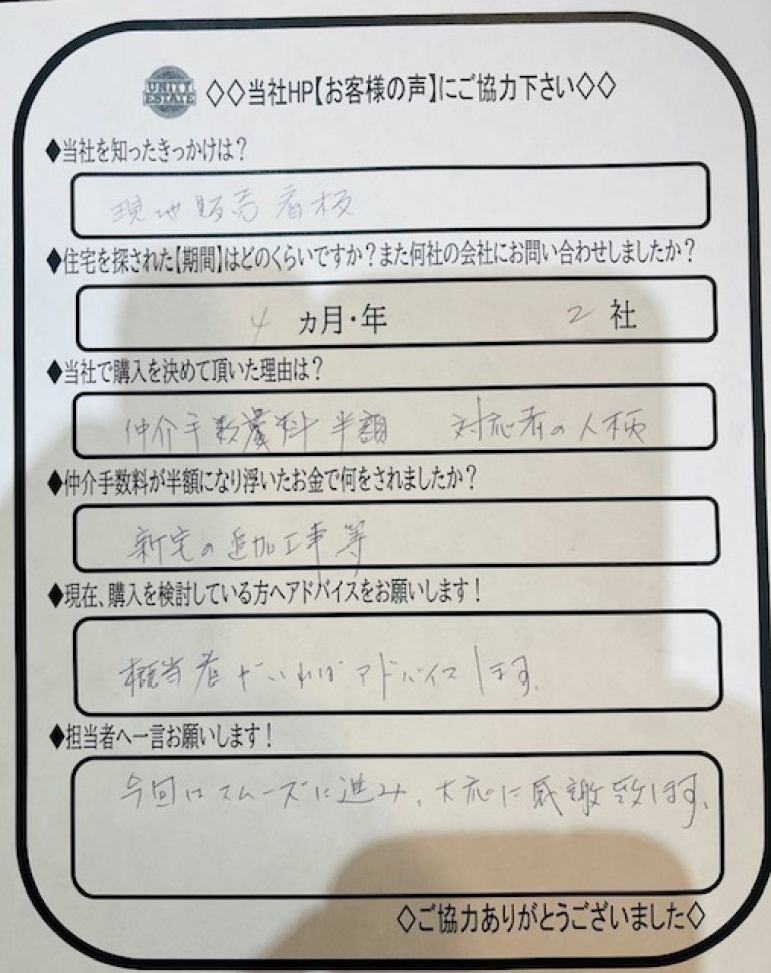 UNITY
ESTATE
◇◇当社HP【お客様の声】にご協力下さい◇◇
◆当社を知ったきっかけは？
現地販売看板
◆住宅を探された【期間】はどのくらいですか？また何社の会社にお問い合わせしましたか？
4 ヵ月・年 2 社
◆当社で購入を決めて頂いた理由は？
仲介手数料半額 対応者の人柄
◆仲介手数料が半額になり浮いたお金で何をされましたか？
新宅の追加工事等
◆現在、購入を検討している方へアドバイスをお願いします！
該当者がいればアドバイスします。
◆担当者へ一言お願いします！
今回はスムーズに進み、対応に感謝致します。
◇ご協力ありがとうございました◇